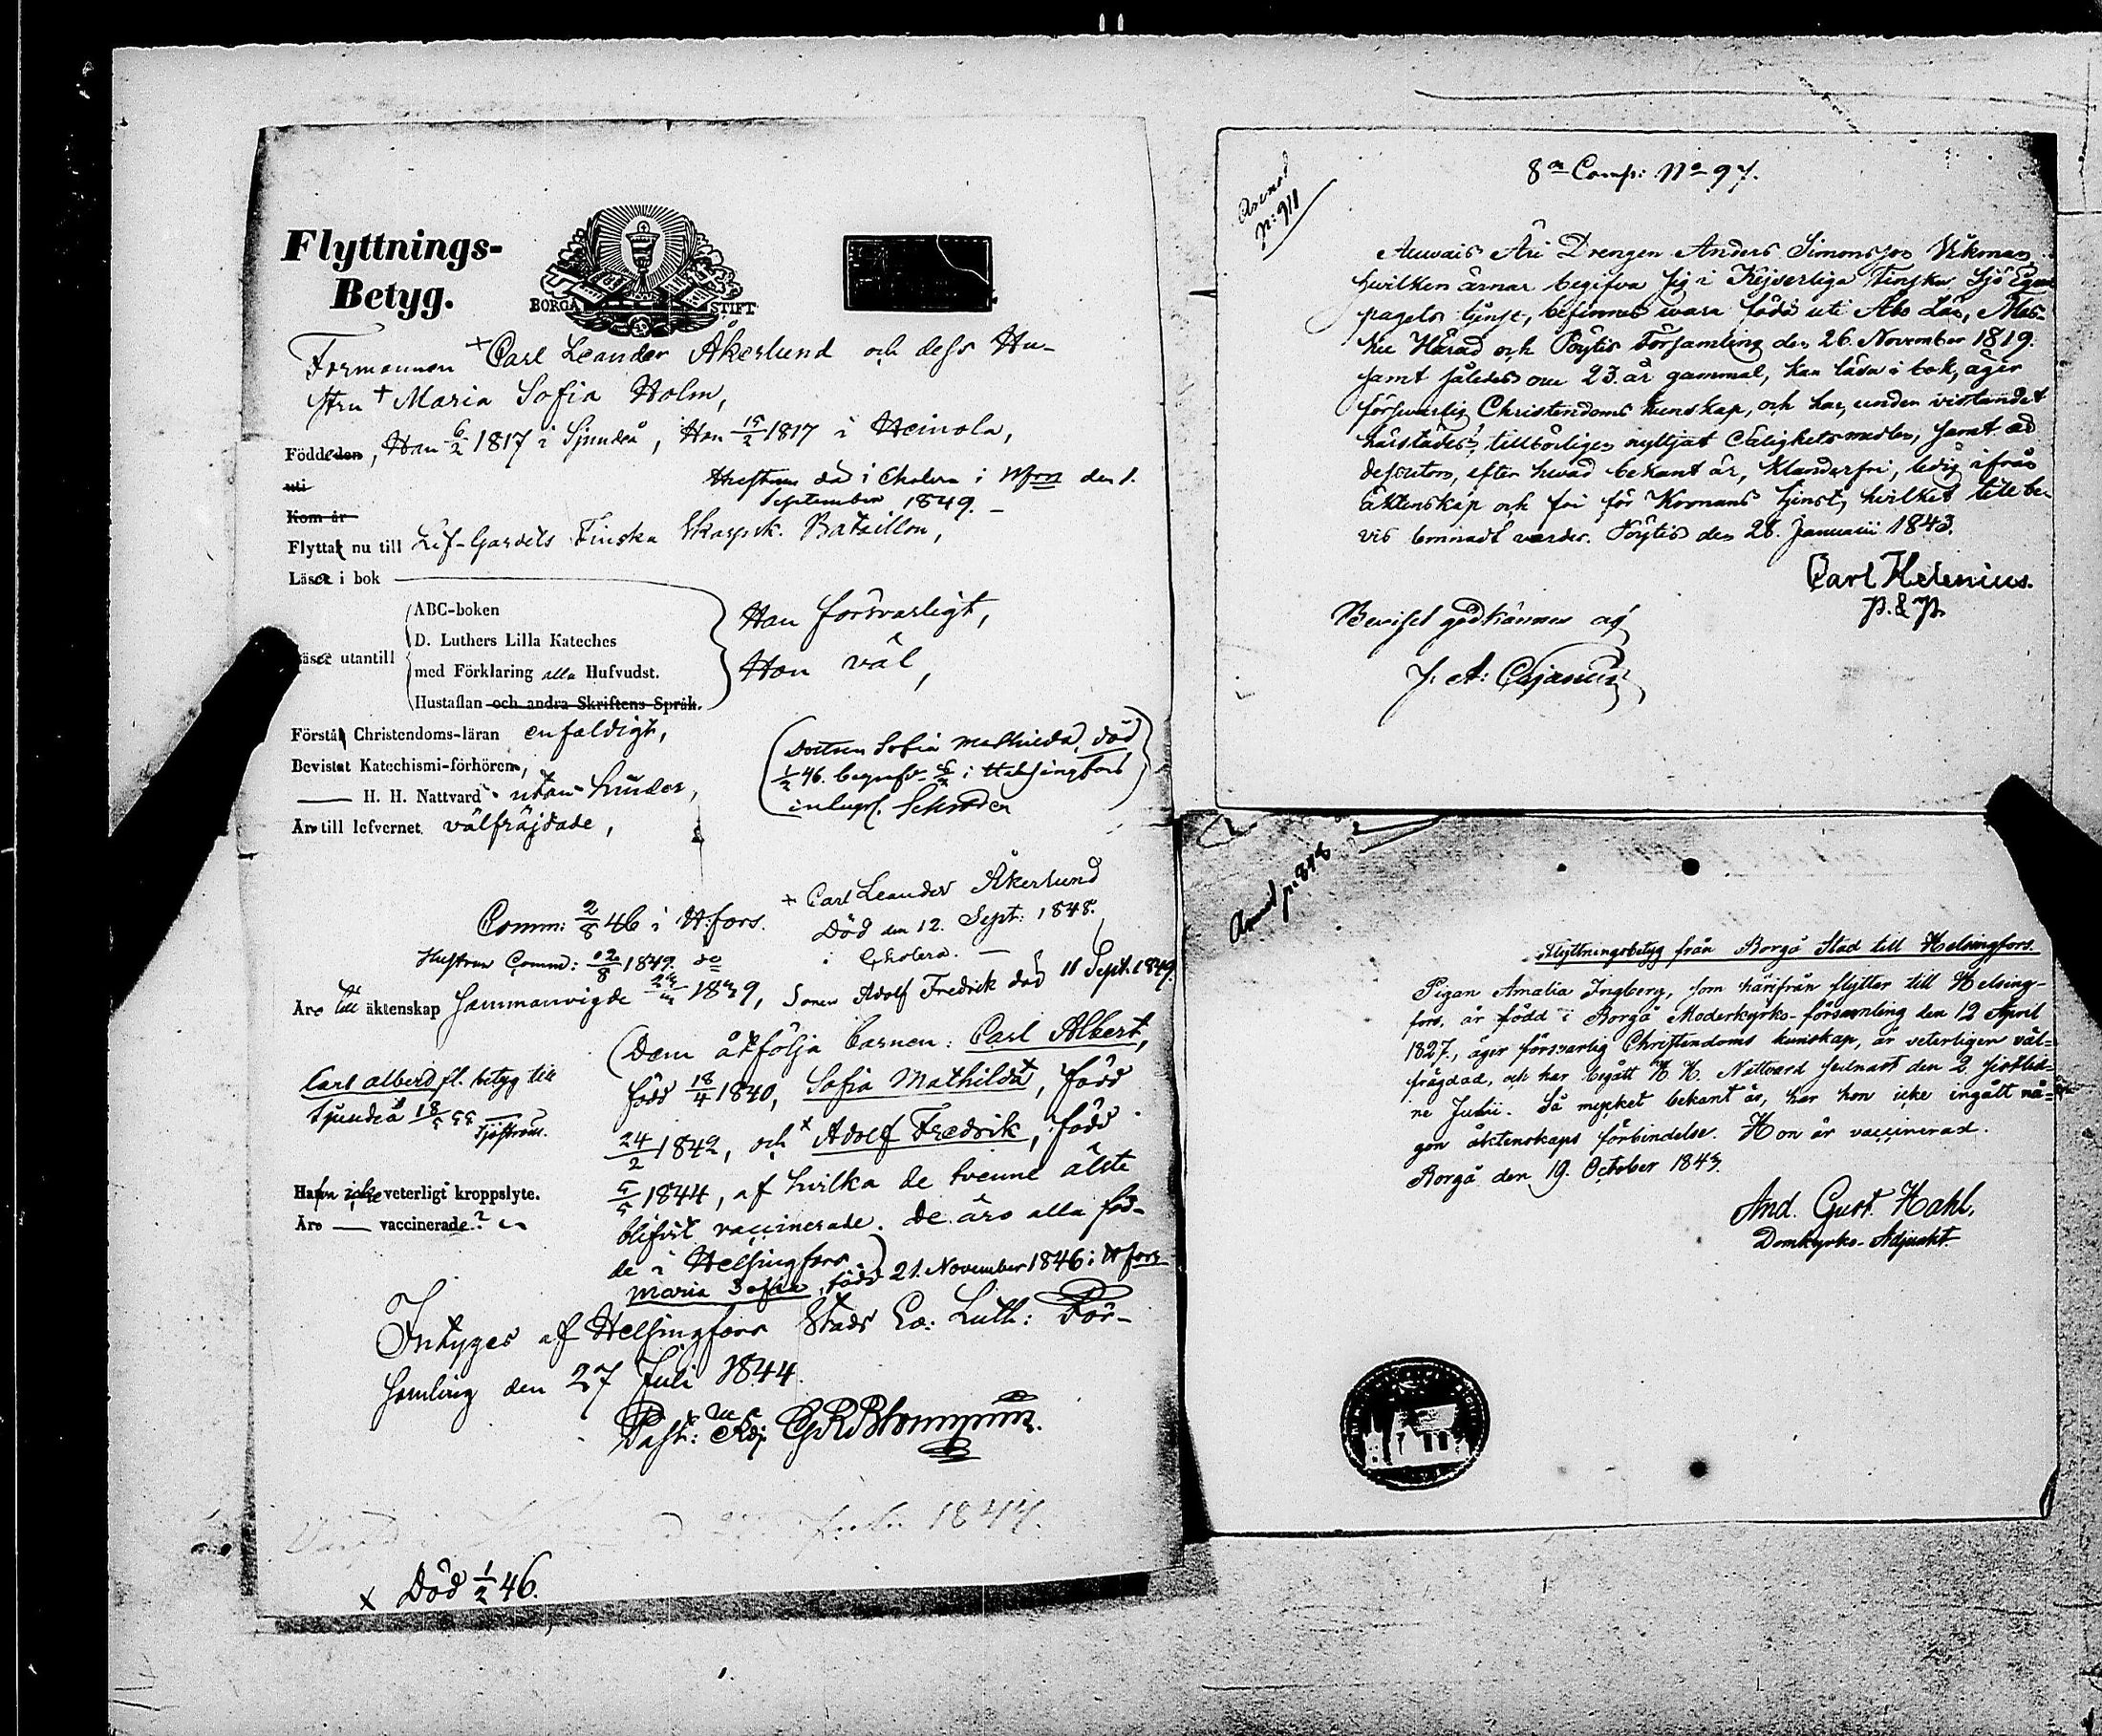 Flyttnings-
Betyg.
BORGÅ STIFT
Formannen Carl Leander Åkerlund och dess Hu-
stru Maria Sofia Holm,
Födde den, Han 6/2 1817 i Sjundeå, Hon 15/2 1817 i Heinola,
uti
Hustrun död i Cholera i Hfors den 1.
September 1849.
Kom år
Flytta nu till Lif-Gardets Finska Skarpsk. Bataillon,
Läser i bok
ABC-boken
D. Luthers Lilla Kateches
Läser utantill
med Förklaring alla Hufvudst.
Hustaflan och andra Skriftens Språk.
Han försvarligt,
Hon väl,
Förstå Christendoms-läran enfaldigt,
Bevistat Katechismi-förhören,
H. H. Nattvard utan hinder,
Äro till lefvernet välfräjdade,
(Dottren Sofia Mathilda, död
1/2 46. begrafv. i Helsingfors
Comm: 2/8 46 i H:fors.
Hustrun Comm: 1849.
+ Carl Leander Åkerlund
Död den 12. Sept: 1848.
i Cholera.
Äro till äktenskap sammanvigde 1839, Sonen Adolf Fredrik död 11 Sept. 1849.
(Dem åtfölja barnen: Carl Albert,
född 18/4 1840, Sofia Mathilda, född
24/2 1842, och Adolf Fredrik, född
5/5 1844, af hvilka de tvenne älste
blifvit vaccinerade. De äro alla föd-
de i Helsingfors.)
Maria Sofia, född 21. November 1846 i Hfors
Carl Alberd fl. betyg till
Sjundeå 18/5 55
Sjöström.
Hafva icke veterligt kroppslyte.
Äro vaccinerade?
Intygas af Helsingfors Stads Ev: Luth: För-
samling den 27 Juli 1844.
Past: Adj.
Juli 1844.
x Död 1/2 46.
8de Comp: No 97.
Anvais Äri Drengen Anders Simonsson Vikman,
hvilken ärnar begifva sig i Kejserliga Finska Sjö Equi
pagets tjenst, befinnes vara född uti Åbo Län, Mas-
ku Härad och Pöytis Församling den 26. November 1819.
samt således nu 23. år gammal, kan läsa i bok, äger
försvarlig Christendoms kunskap, och har, under vistandet
härstädes, tillbörligen nyttjat Salighetsmedlen, samt är
dessutom, efter hvad bekant är, klanderfri, ledig ifrån
äktenskap och fri för Kronans tjenst, hvilket till be-
vis lemnadt varder. Pöytis den 28. Januarii 1843.
Carl Helenius.
P. & P.
Beviset godkännes af
Flyttningsbetyg från Borgå Stad till Helsingfors
Pigan Amalia Ingberg, som härifrån flyttar till Helsing-
fors, är född i Borgå Moderkyrko-församling den 12 April
1827, äger försvarlig Christendoms kunskap, är veterligen väl-
frägdad, och har begått H. H. Nattvard sednast den 2 sistled-
ne Julii. Så mycket bekant är, har hon icke ingått nå-
gon äktenskaps förbindelse. Hon är vaccinerad.
Borgå den 19. October 1843.
And. Gust. Hahl,
Domkyrko-Adjunkt.